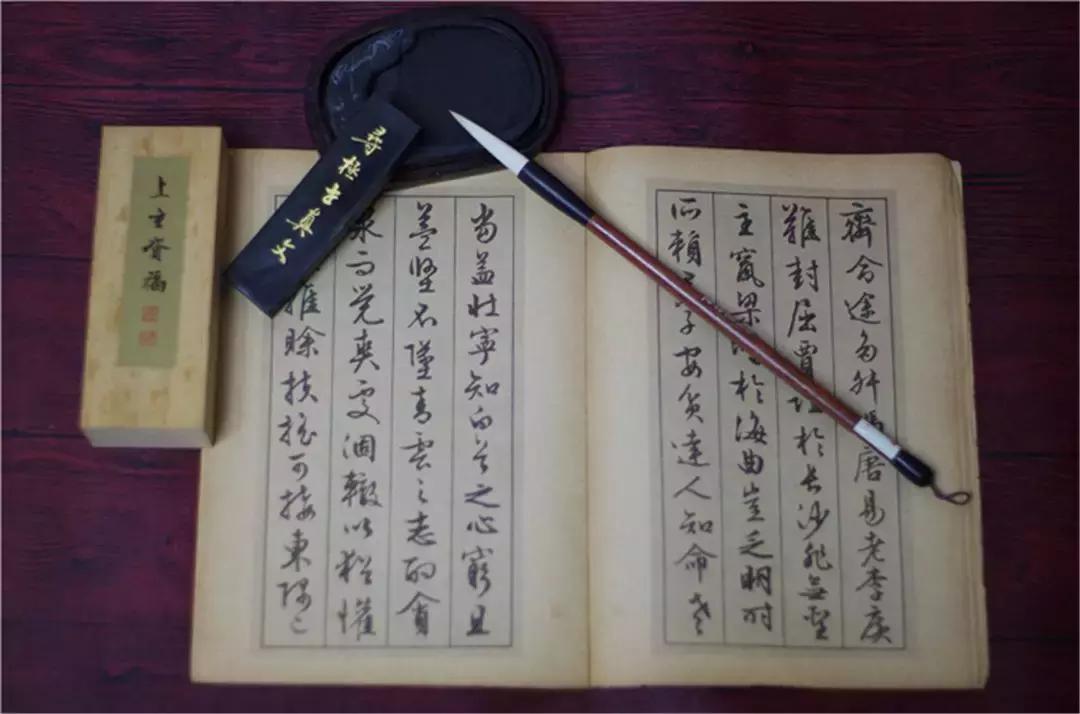 齊命途多舛馮唐易老李廣
難封屈賈誼於長沙非無聖
主竄梁鴻於海曲豈乏明时
所賴君子安貧達人知命老
當益壯寧知白首之心窮且
益堅不墜青雲之志酌貪
泉而覺爽處涸轍以猶懽
雖賒扶搖可接東隅已
尋極真文
上主賚福